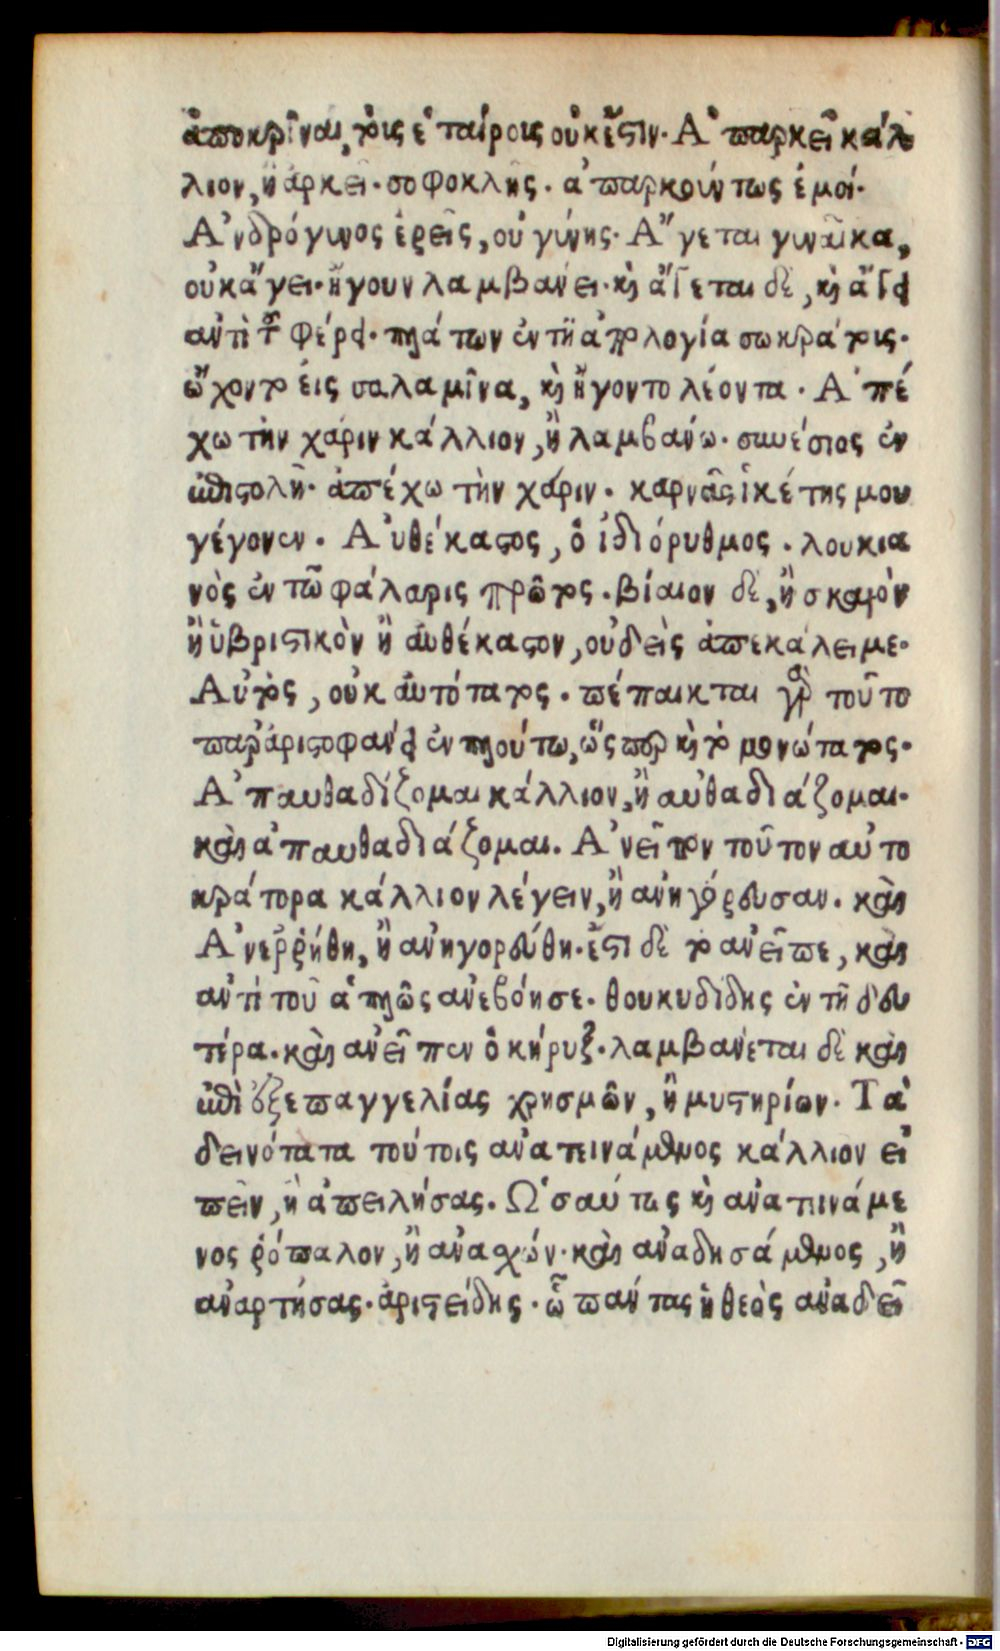 ἀποκρῖναι, τοῖς ἑταίροις οὐκ ἔστιν. Ἀπαρκεῖ κάλ
λιον, ἢ ἀρκεῖ. σοφοκλῆς. ἀπαρκούντως ἐμοί.
Ἀνδρόγυνος ἐρεῖς, οὐ γύνης. Ἄγεται γυναῖκα,
οὐκ ἄγει. ἤγουν λαμβάνει. κὴ ἄγεται δὲ, κὴ ἄγει
αντὶ τοῦ φέρει. πλάτων ἐν τῆ ἀπολογία σωκράτους.
ᾤχοντο εἰς σαλαμῖνα, κὴ ἤγοντο λέοντα. Ἀπέ
χω τὴν χάριν κάλλιον, ἢ λαμβάνω. συνέσιος ἐν
ἐπιστολῆ. ἀπέχω τὴν χάριν. καρνᾶς ἱκέτης μου
γέγονεν. Αὐθέκαστος, ὁ ἰδιόρυθμος. λουκια
νὸς ἐν τῶ φάλαρις πρῶτος. βίαιον δὲ, ἢ σκαιὸν
ἢ ὑβριστικὸν ἢ αὐθέκαστον, οὐδεὶς ἀπεκάλει με.
Αὐτὸς, οὐκ αὐτότατος. πέπαικται γὰρ τοῦτο
παρ' ἀριστοφάνει ἐν πλούτω, ὥσπερ κὴ τὸ μονώτατος.
Ἀπαυθαδίζομαι κάλλιον, ἢ αὐθαδιάζομαι.
καὶ ἀπαυθαδιάζομαι. Ἀνεῖπον τοῦτον αὐτο
κράτορα κάλλιον λέγειν, ἢ ανηγόρευσαν. καὶ
Ἀνεῤῥήθη, ἢ ανηγορεύθη. ἔστι δὲ τὸ ανεῖπε, καὶ
αντὶ τοῦ ἁπλῶς ανεβόησε. θουκυδίδης ἐν τῆ δευ
τέρα. καὶ ανεῖπεν ὁ κήρυξ. λαμβάνεται δὲ καὶ
ἐπὶ ἐξεπαγγελίας χρησμῶν, ἢ μυστηρίων. Τὰ
δεινότατα τούτοις ανατεινάμενος κάλλιον εἰ
πεῖν, ἢ ἀπειλήσας. Ὡσαύτως κὴ ανατεινάμε
νος ῥόπαλον, ἢ ανασχών. καὶ αναδησάμενος, ἢ
αναρτήσας. ἀριστείδης. ὦ πάντας ἡ θεὸς αναδεῖ
Digitalisierung gefördert durch die Deutsche Forschungsgemeinschaft - DFG